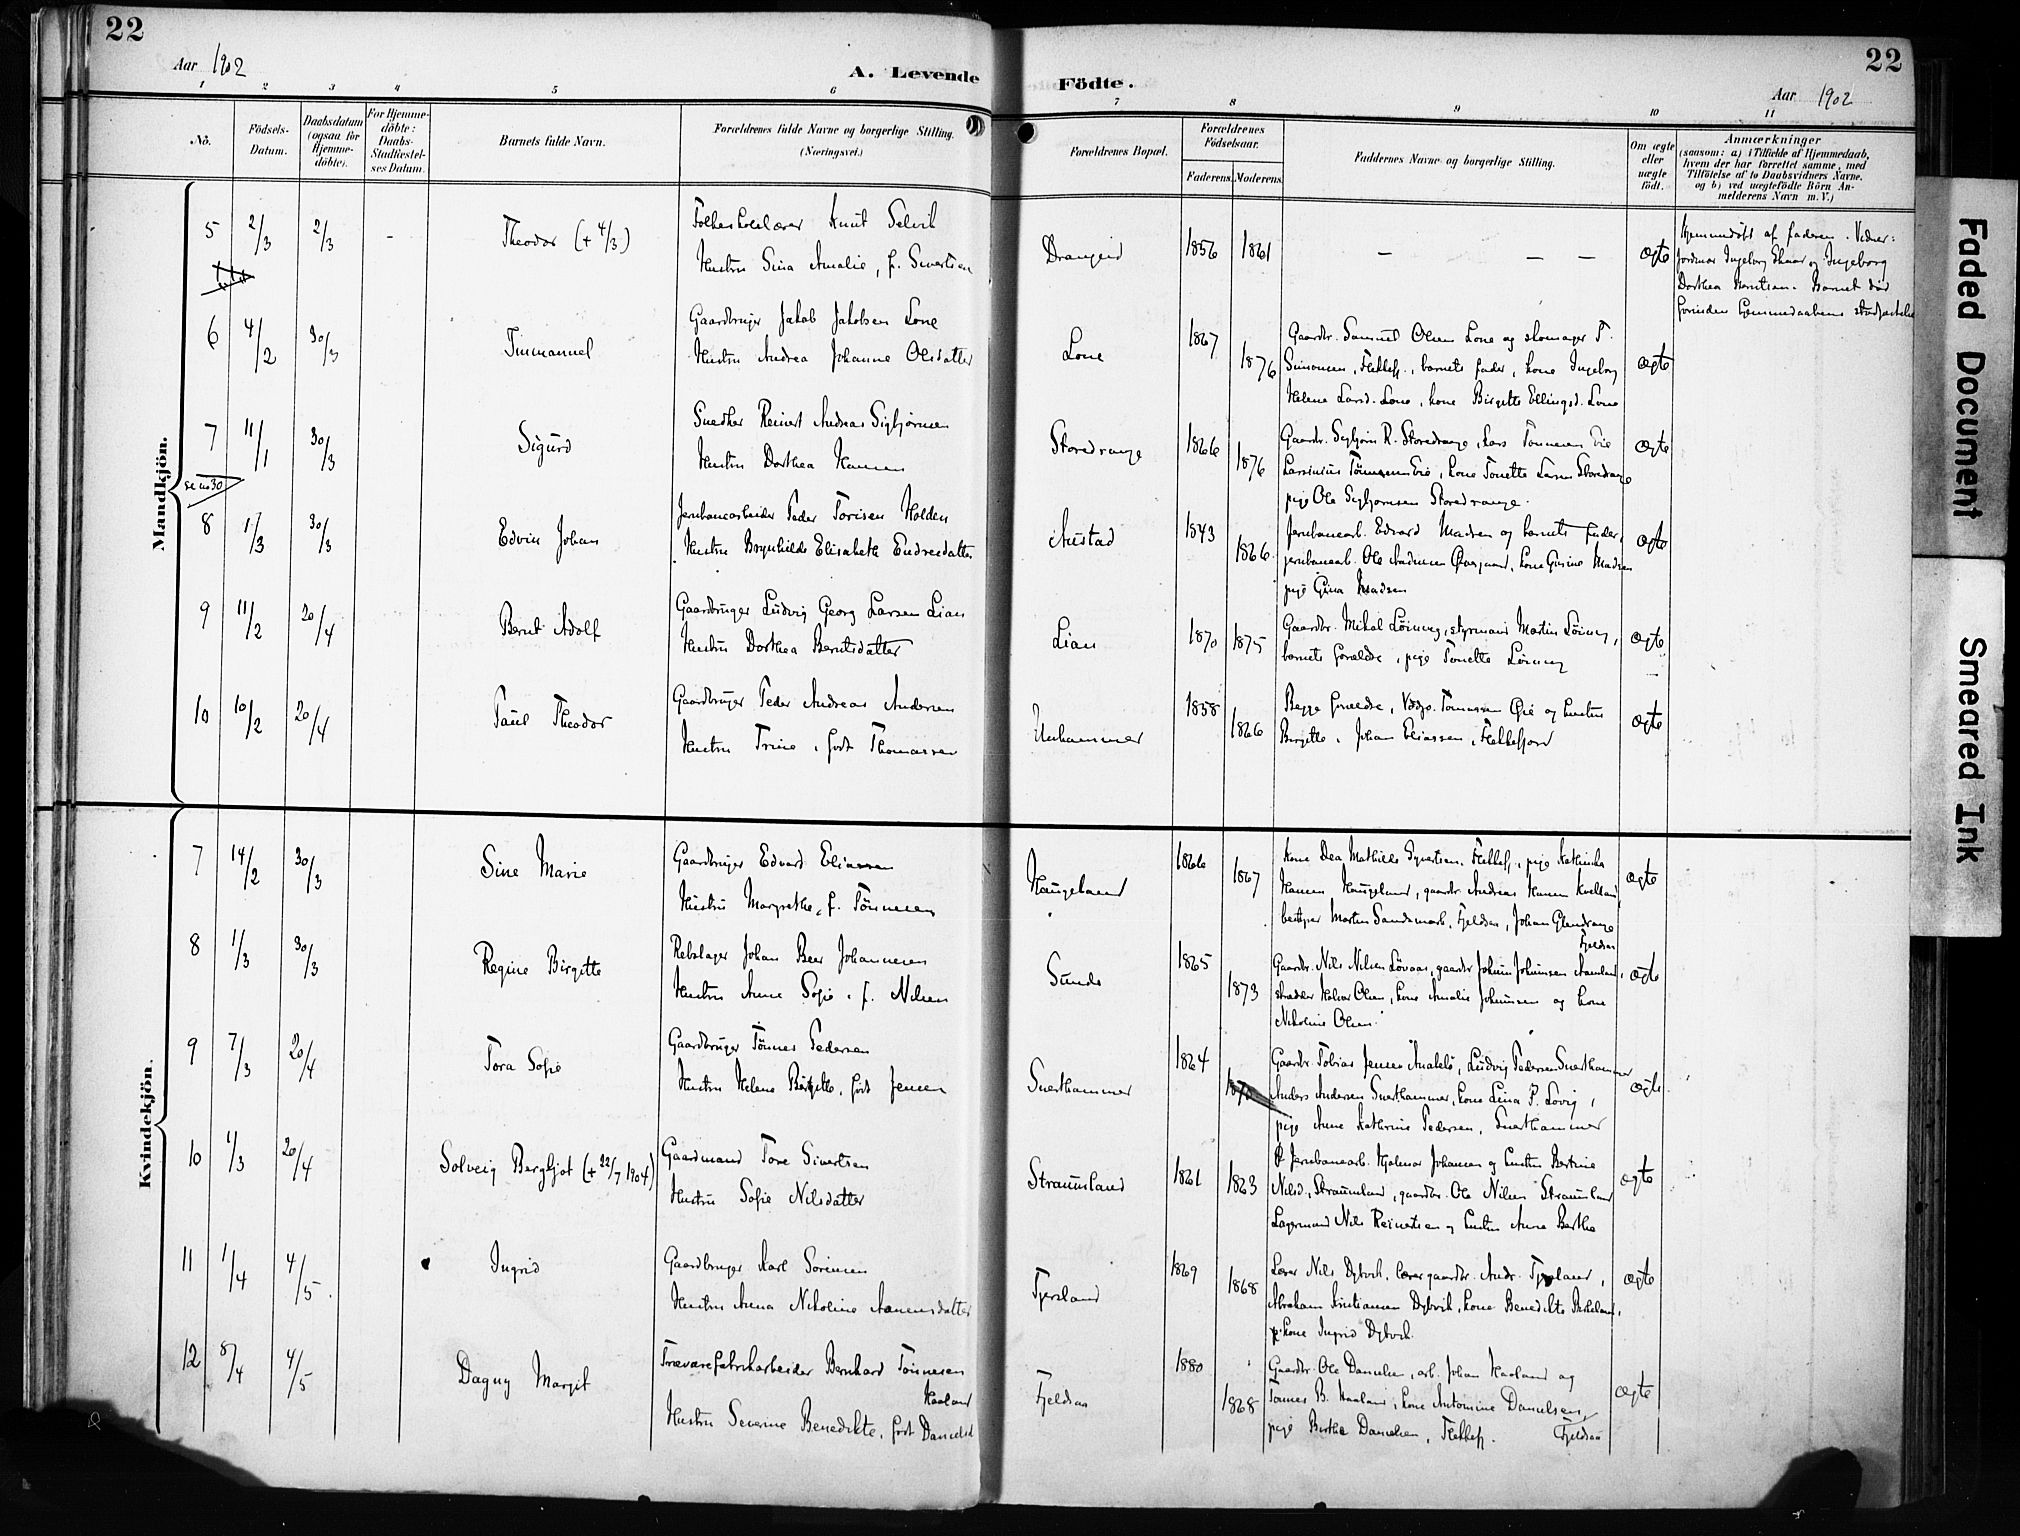 22
Aar 1902
A. Levende
Födte.
Aar 1902
22
1 2 3 4 5 6 7 8 9 10 11
No.
Födsels-Datum.
Daabsdatum (ogsaa for Hjemme-döbte).
For Hjemme-döbte: Daabs-Stadfæstel-ses Datum.
Barnets fulde Navn.
Forældrenes fulde Navne og borgerlige Stilling.
(Næringsvei.)
Forældrenes Bopæl.
Forældrenes Födselsaar.
Faderens.
Moderens.
Faddernes Navne og borgerlige Stilling.
Om ægte eller uægte födt.
Anmærkninger
(saasom: a) i Tilfælde af Hjemmedaab,
hvem der har forrettet samme, med
Tilföielse af to Daabsvidners Navne.
og b) ved uægtefödte Börn An-
melderens Navn m. V.)
Mandkjön.
5 2/3 2/3 - Theodor (+ 4/3)
Folkeskolelærer Knut Selvik
Hustru Sina Amalie, f. Sivertsen
Drangeid 1856 1861 — — — ægte
Hjemmedöbt af faderen. Vidner:
jordmor Ingeborg Skaar og Ingeborg
Dorthea Berntsen. Barnet död
forinden hjemmedaabens stadfæstelse
6 4/2 30/3 Immanuel
Gaardbruger Jakob Jakobsen Lone
Hustru Andrea Johanne Olsdatter
Lone 1867 1876
Gaardbr. Samuel Olsen Lone og skomager T.
Simonsen, Flekkefj., barnets fader, kone Ingeborg
Helene Larsd. Lone, kone Birgitte Ellingsd. Lone
ægte
7 11/1 30/3 Sigurd
se no 30
Snedker Reinert Andreas Sigbjørnsen
Hustru Dorthea Hansen
Storedrange 1866 1876
Gaardbr. Sigbjørn R. Storedrange, Lars Tönnesen
Larsinius Tönnesen, kone Tonette Larsen Storedrange
pige Ole Sigbjørnsen Storedrange.
ægte
8 1/3 30/3 Edvin Johan
Jernbanearbeider Peder Torisen Holden
Hustru Brynhilde Elisabeth Endresdatter
Austad 1843 1866
Jernbanearb. Edvard Madsen og barnets fader,
jernbanearb. Ole Andersen, kone Gurine Madsen
pige Gina Madsen
ægte
9 11/2 20/4 Bernt Adolf
Gaardbruger Ludvig Georg Larsen Lian
Hustru Dorthea Berntsdatter
Lian 1870 1875
Gaardbr. Mikal, styrmand Martin,
barnets forældre, pige Tonette
ægte
10 10/2 20/4 Paul Theodor
Gaardbruger Peder Andreas Andersen
Hustru Trine, født Thomassen
Unhammer 1858 1866
Begge forældre, Tönnesen Øie og hustru
Birgitte, Johan Eliassen, Flekkefjord
ægte
Kvindekjön.
7 14/2 30/3 Sine Marie
Gaardbruger Edvard Eliassen
Hustru Margrethe, f. Tönnesen
Haugeland 1866 1867
Kone Dea Mathilde Syvertsen, Flekkefj., pige Kathinka
Hansen Haugeland, gaardbr. Andreas Hansen Kvelland,
bestyrer Morten Sandsmark, Fjeldsaa, Johan Glendrange
Fjeldsaa
ægte
8 1/3 30/3 Regine Birgitte
Rebslager Johan Beer Johannesen
Hustru Anne Sofie, f. Nilsen
Sunde 1865 1873
Gaardbr. Nils Nilsen Løvaas, gaardbr. Johan Johansen,
skrædder Halvor Olsen, kone Amalie Johansen og kone
Nikoline Olsen.
ægte
9 7/3 20/4 Tora Sofie
Gaardbruger Tönnes Pedersen
Hustru Helene Birgitte, født Jensen
Snerthammer 1864
Gaardbr. Tobias Jensen, Ludvig Pedersen Snerthammer
Anders Andersen Snerthammer, kone Lina P. Lovig,
pige Anne Kathrine Pedersen, Snerthammer
ægte
10 1/3 20/4 Solveig Bergljot (+ 22/7 1904)
Gaardmand Tore Sivertsen
Hustru Sofie Nilsdatter
Straumland 1861 1863
Jernbanearb. Hjalmar Johansen og hustru Bertine
Nilsd., Straumland, gaardbr. Ole Nilsen Straumland
Lagermand Nils Reinertsen og hustru Anne Bertha
ægte
11 1/4 4/5 Ingrid
Gaardbruger Karl Sörensen
Hustru Anna Nikoline Aanensdatter
Tjersland 1869 1868
Lærer Nils Dybvik, gaardbr. Andr. Tjersland,
Abraham Kristiansen Dybvik, kone Benedikte,
kone Ingrid Dybvik.
ægte
12 8/4 4/5 Dagny Margit
Trævarefabrikarbeider Bernhard Tönnesen
Haaland
Hustru Severine Benedikte, født Danielsd
Fjeldsaa 1880 1868
Gaardbr. Ole Danielsen, arb. Johan Haaland og
Tönnes B. Haaland, kone Antomine Danielsen,
pige Berthe Danielsen, Flekkefj. Fjeldsaa
ægte
Faded Document
Smeared Ink